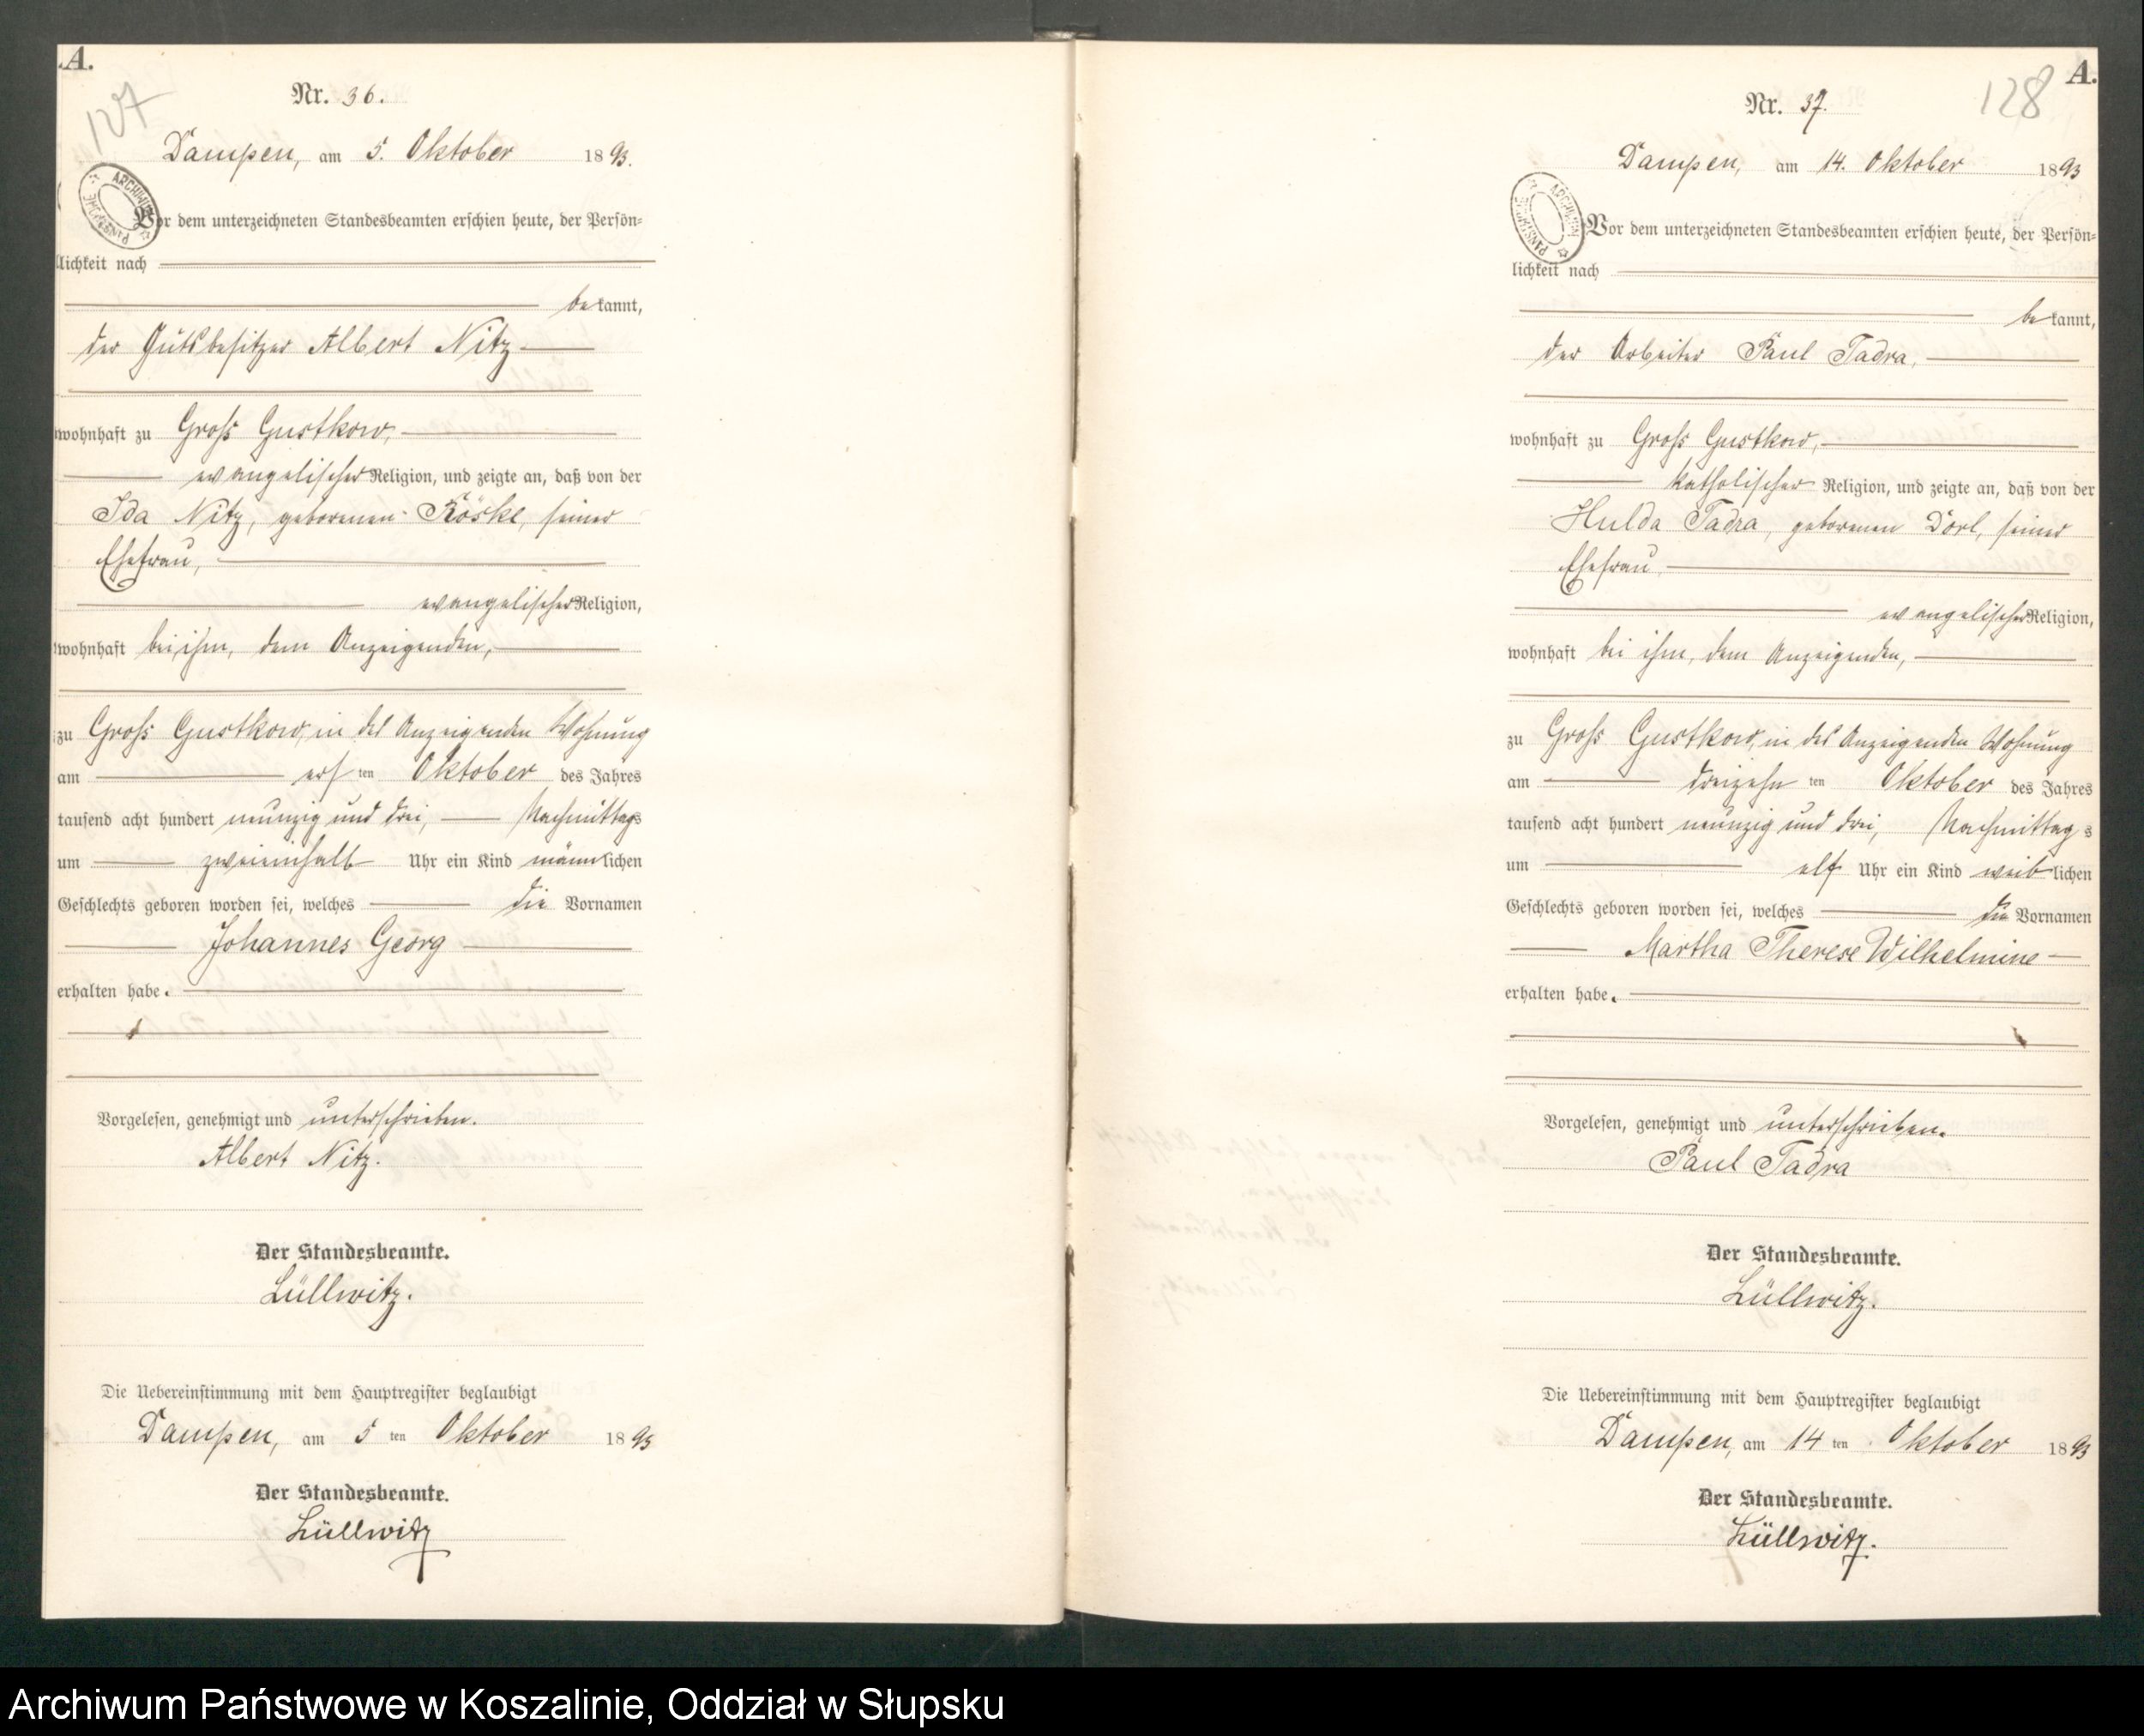 A.
127
Nr. 36.
Dampen, am 5. Oktober 1893.
Vor dem unterzeichneten Standesbeamten erschien heute, der Persön=
lichkeit nach
bekannt,
der Gutsbesitzer Albert Nitz
wohnhaft zu Groß Gustkow,
evangelischer Religion, und zeigte an, daß von der
Ida Nitz, geborenen Röske, seiner
Ehefrau,
evangelischer Religion,
wohnhaft bei ihm, dem Anzeigenden,
zu Groß Gustkow, in des Anzeigenden Wohnung
am ersten Oktober des Jahres
tausend acht hundert neunzig und drei, Nachmittags
um zweieinhalb Uhr ein Kind männlichen
Geschlechts geboren worden sei, welches die Vornamen
Johannes Georg
erhalten habe.
Vorgelesen, genehmigt und unterschrieben.
Albert Nitz.
Der Standesbeamte.
Lüllwitz.
Die Uebereinstimmung mit dem Hauptregister beglaubigt
Dampen, am 5ten Oktober 1893
Der Standesbeamte.
Lüllwitz
A.
128
Nr. 37.
Dampen, am 14. Oktober 1893
Vor dem unterzeichneten Standesbeamten erschien heute, der Persön=
lichkeit nach
bekannt,
der Arbeiter Paul Tadra,
wohnhaft zu Groß Gustkow,
katholischer Religion, und zeigte an, daß von der
Hulda Tadra, geborenen Dorl, seiner
Ehefrau,
evangelischer Religion,
wohnhaft bei ihm, dem Anzeigenden,
zu Groß Gustkow, in des Anzeigenden Wohnung
am dreizehnten Oktober des Jahres
tausend acht hundert neunzig und drei, Nachmittags
um elf Uhr ein Kind weiblichen
Geschlechts geboren worden sei, welches die Vornamen
Martha Therese Wilhelmine
erhalten habe.
Vorgelesen, genehmigt und unterschrieben.
Paul Tadra
Der Standesbeamte.
Lüllwitz.
Die Uebereinstimmung mit dem Hauptregister beglaubigt
Dampen, am 14ten Oktober 1893
Der Standesbeamte.
Lüllwitz.
Archiwum Państwowe w Koszalinie, Oddział w Słupsku